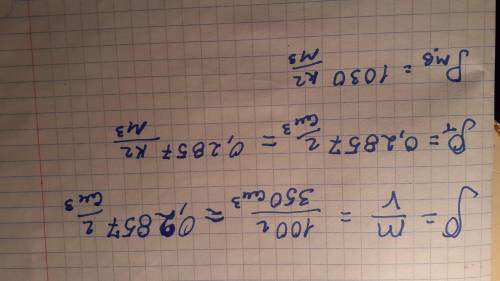 ρ = m/V = 100г/350см³ = 0,2857 г/см³
ρт = 0,2857 г/см³ = 0,2857 кг/м³
ρм.в = 1030 кг/м³